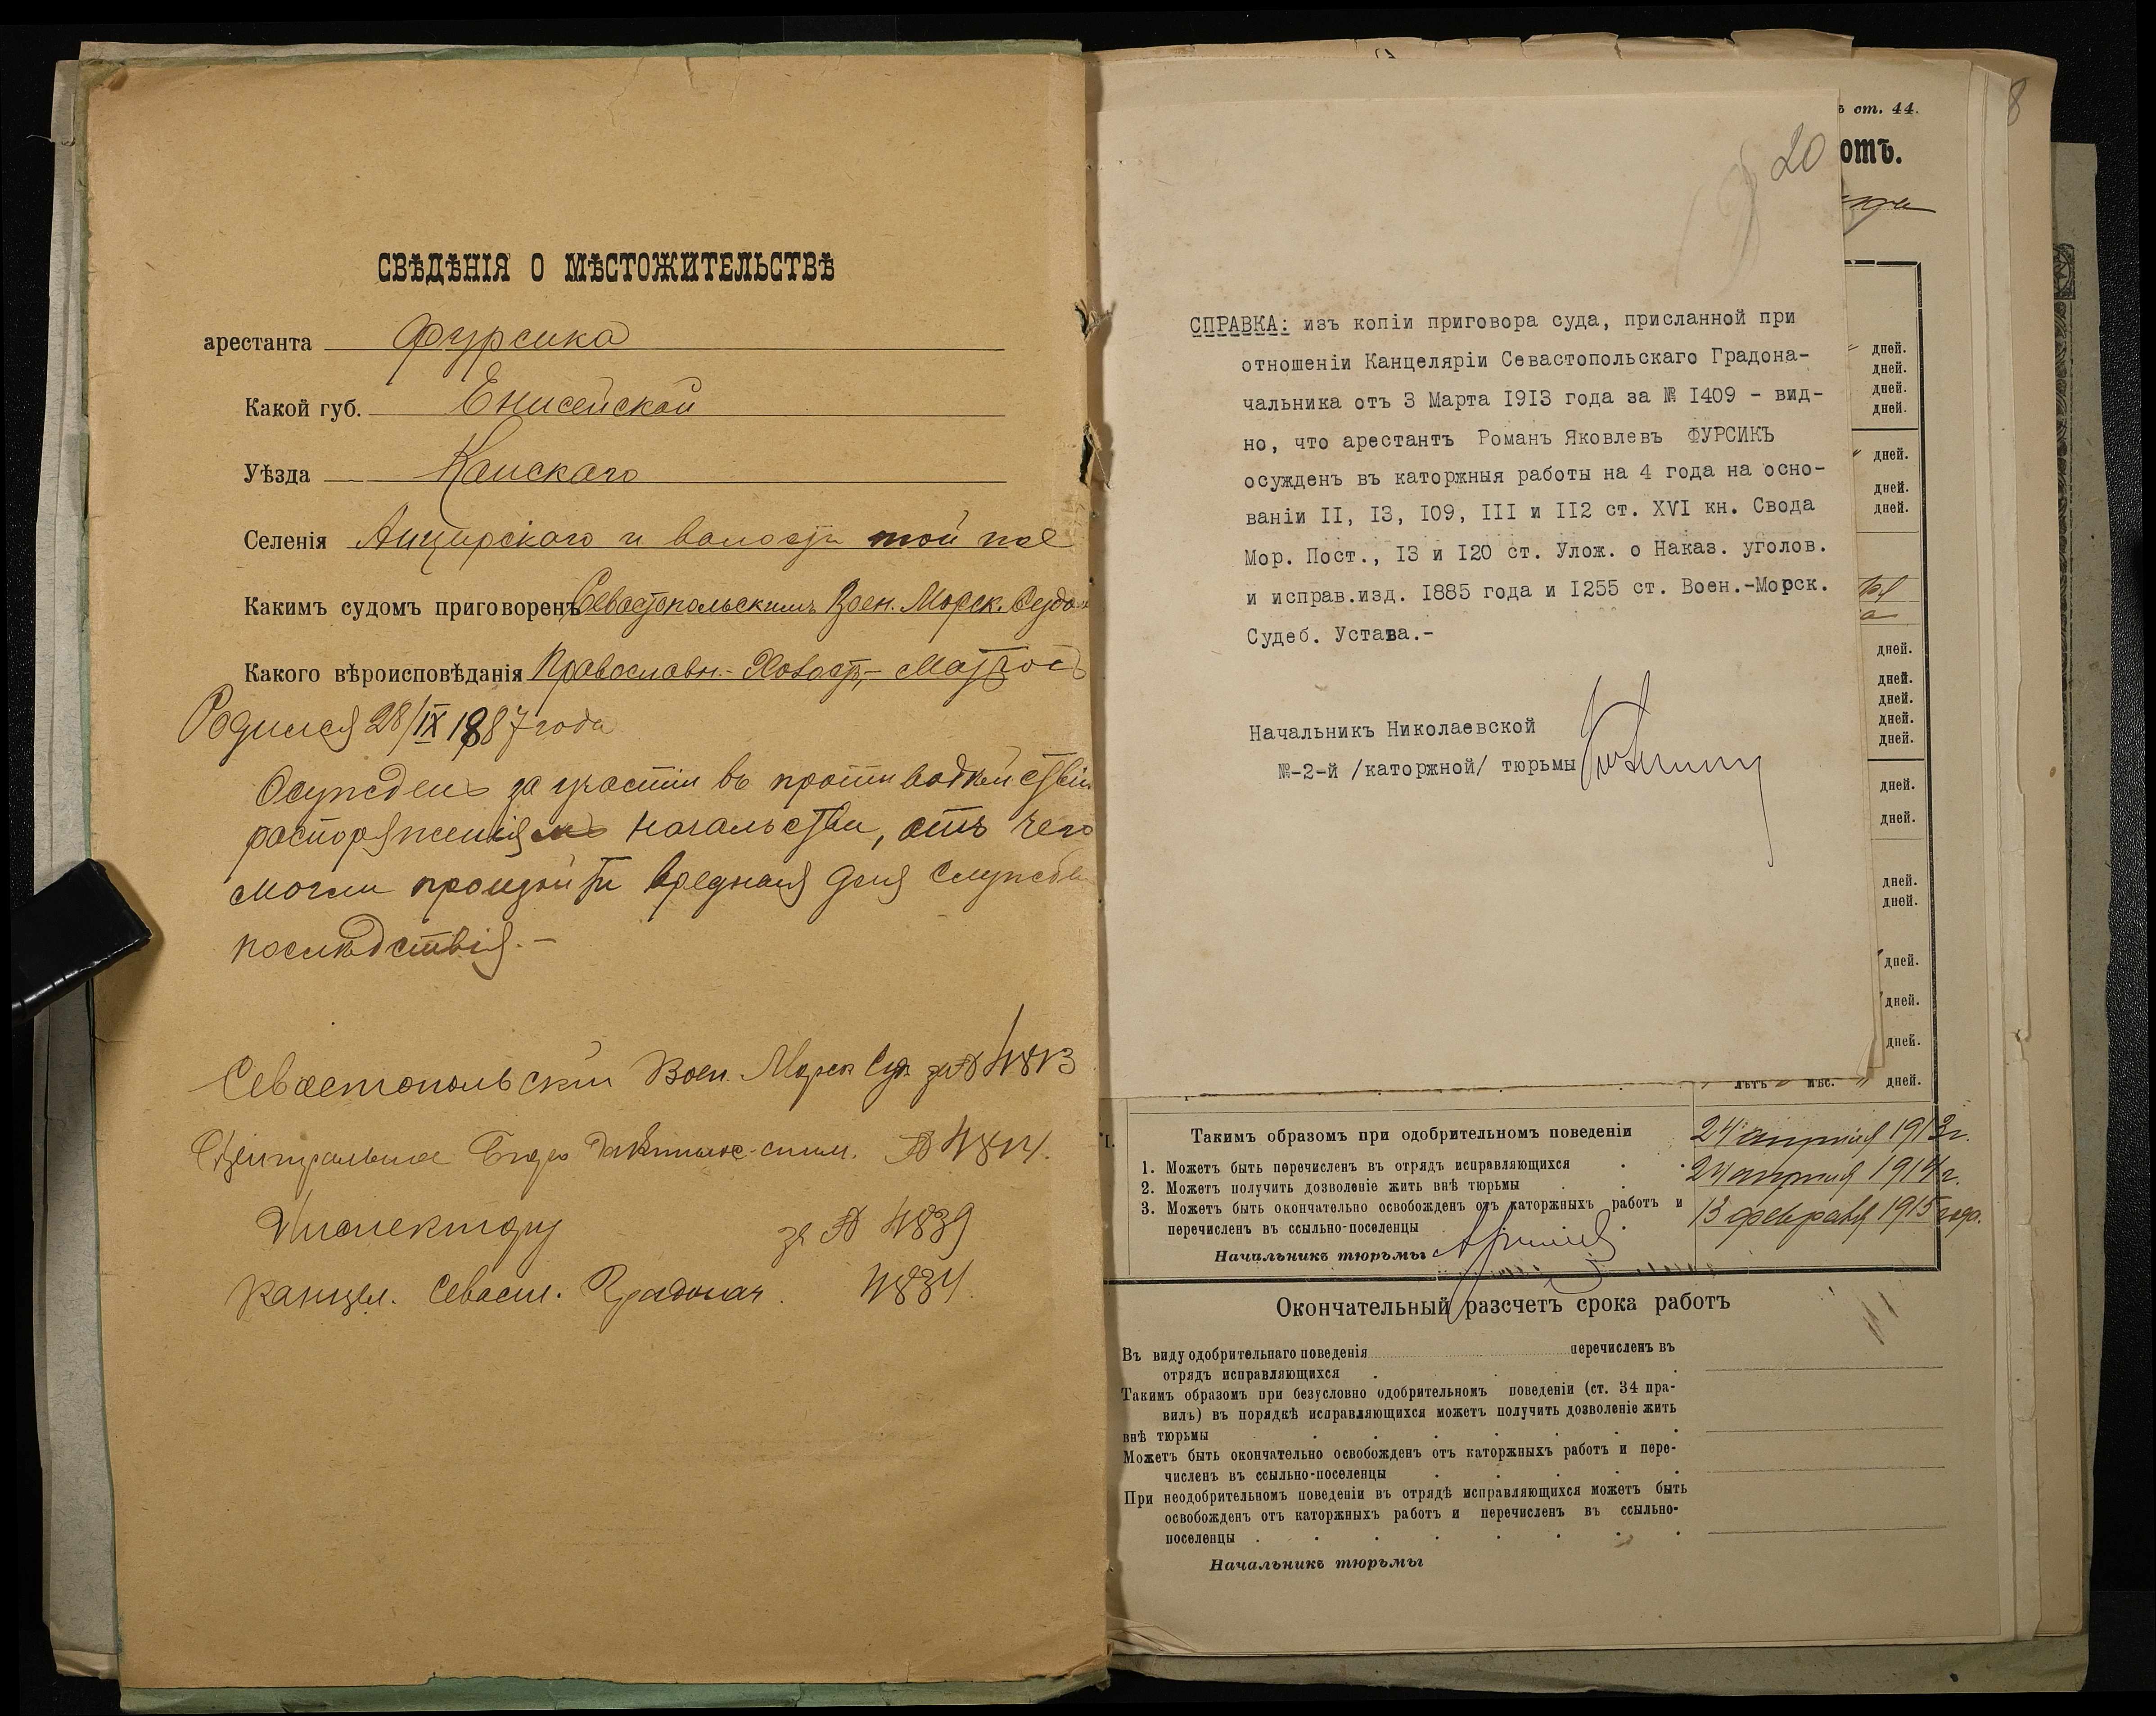 СВѢДѢНІЯ О МѢСТОЖИТЕЛЬСТВѢ
арестанта Фурсика
Какой губ. Енисейской
Уѣзда Канскаго
Селенія Анцирскаго и волости той же
Какимъ судомъ приговоренъ Севастопольскимъ Воен. Морск. Судом
Какого вѣроисповѣданія Православн. - Холост, - Матрос
Родился 28/IX 1887 года
Осужденъ за участіи въ противодѣйствіи
распоряженія начальства, отъ чего
могли произойти вредныя для службы
послѣдствія. -
Севастопольскій Воен. Морск Суд за № 4813
Центральное Бюро № 4814.
Инспектору за № 4839
Канцел. Севаст. Градонач. 4834.
20
СПРАВКА: изъ копіи приговора суда, присланной при
отношеніи Канцеляріи Севастопольскаго Градона-
чальника отъ 3 Марта I9I3 года за № I409 - вид-
но, что арестантъ Романъ Яковлевъ ФУРСИКЪ
осужденъ въ каторжныя работы на 4 года на осно-
ваніи II, I3, I09, III и II2 ст. XVI кн. Свода
Мор. Пост., I3 и I20 ст. Улож. о Наказ. уголов.
и исправ.изд. I885 года и I255 ст. Воен.-Морск.
Судеб. Устава.-
Начальникъ Николаевской
№-2-й /каторжной/ тюрьмы
8
ст. 44.
отъ.
дней.
дней.
дней.
дней.
дней.
дней.
дней.
дней.
дней.
дней.
дней.
дней.
дней.
дней.
дней.
дней.
дней.
дней.
дней.
лѣтъ мѣс. дней.
Такимъ образомъ при одобрительномъ поведеніи
1. Можетъ быть перечисленъ въ отрядъ исправляющихся 24 апрѣля 1913 г.
2. Можетъ получить дозволеніе жить внѣ тюрьмы 24 апрѣля 1914 г.
3. Можетъ быть окончательно освобожденъ отъ каторжныхъ работъ и
перечисленъ въ ссыльно-поселенцы 13 февраля 1915 года.
Начальникъ тюрьмы
Окончательный разсчетъ срока работъ
Въ виду одобрительнаго поведенія перечисленъ въ
отрядъ исправляющихся
Такимъ образомъ при безусловно одобрительномъ поведеніи (ст. 34 пра-
вилъ) въ порядкѣ исправляющихся можетъ получить дозволеніе жить
внѣ тюрьмы
Можетъ быть окончательно освобожденъ отъ каторжныхъ работъ и пере-
численъ въ ссыльно-поселенцы
При неодобрительномъ поведеніи въ отрядѣ исправляющихся можетъ быть
освобожденъ отъ каторжныхъ работъ и перечисленъ въ ссыльно-
поселенцы
Начальникъ тюрьмы